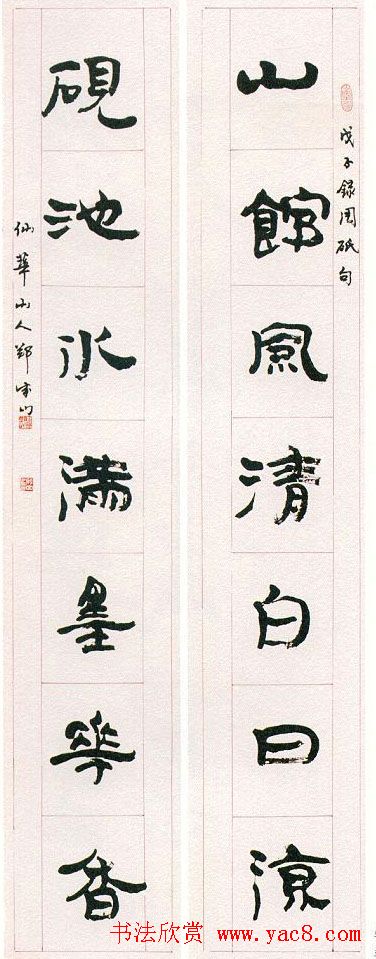 戊子録周砥句
山館風清白日涼
硯池水滿墨華香
仙華山人鄭
书法欣赏 www.yac8.com